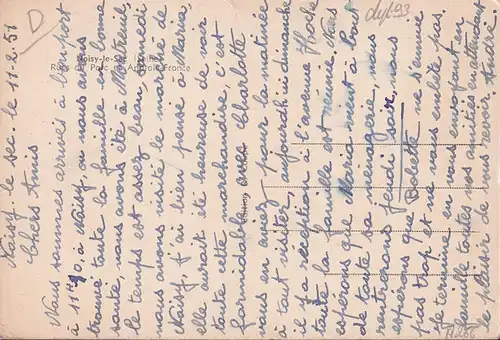 Noisy le sec le 11-2-51
Chers Amis
Nous sommes arrivés à bon port
à 11H40, à Noisy, ou nous avons
trouvé toute la famille en bonne
santé nous avons été à Montreuil
le temps est assez beau, samedi
nous avons visité le marché de
Noisy, j'ai bien pensé à Maria,
elle aurait été heureuse de voir
toute cette marchandise, c'est
formidable, avec Charlotte
vous en avez pour la matinée
à tout visiter, aujourd'hui dimanche
il y a réception à l'avenue
toute la famille est réunie, Mais
de toute sa ménagerie, nous
rentrerons jeudi soir, nous
espérons que Babette ne s'ennuie
pas trop et ne vous embête pas
je termine en vous envoyant en
famille toutes nos amitiés en attendant
le plaisir de vous revoir. André
Noisy-le-Sec (Seine)
Rue du Parc et Anatole-France
D